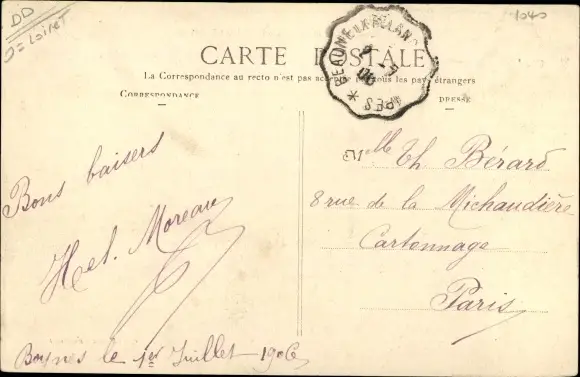 DD
D= Loiret
1040
CARTE POSTALE
La Correspondance au recto n'est pas tous les pays étrangers
CORRESPONDANCE
DRESSE
BEAUNE
Bons baisers
Hel. Moreau
Boynes le 1er Juillet 1906
Mlle Th Bérard
8 rue de la Michaudière
Cartonnage
Paris